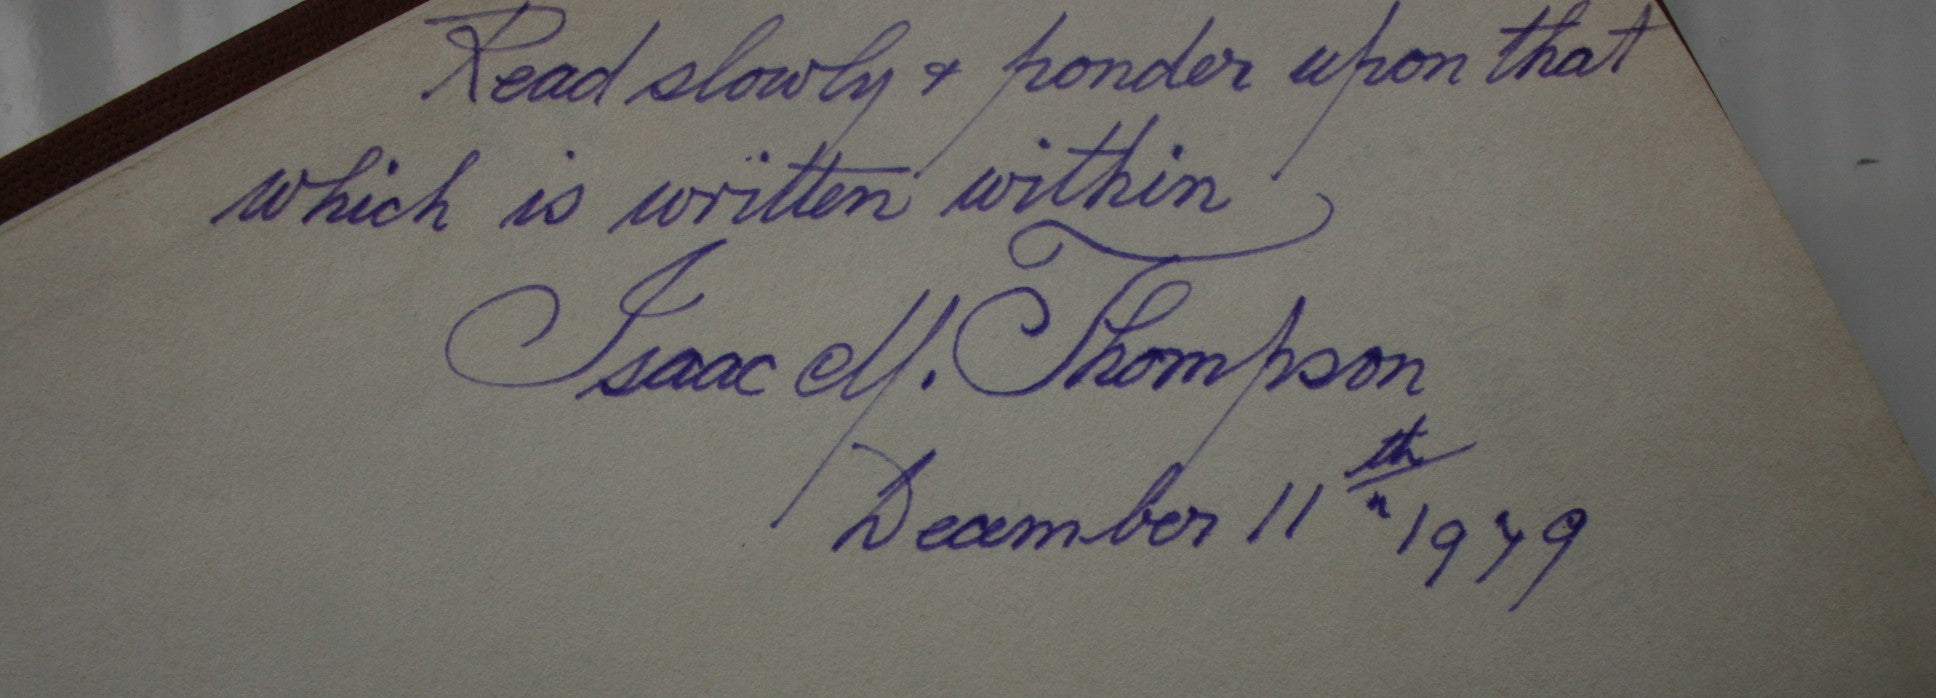 Read slowly & ponder upon that
which is written within
Isaac M. Thompson
December 11th 1949